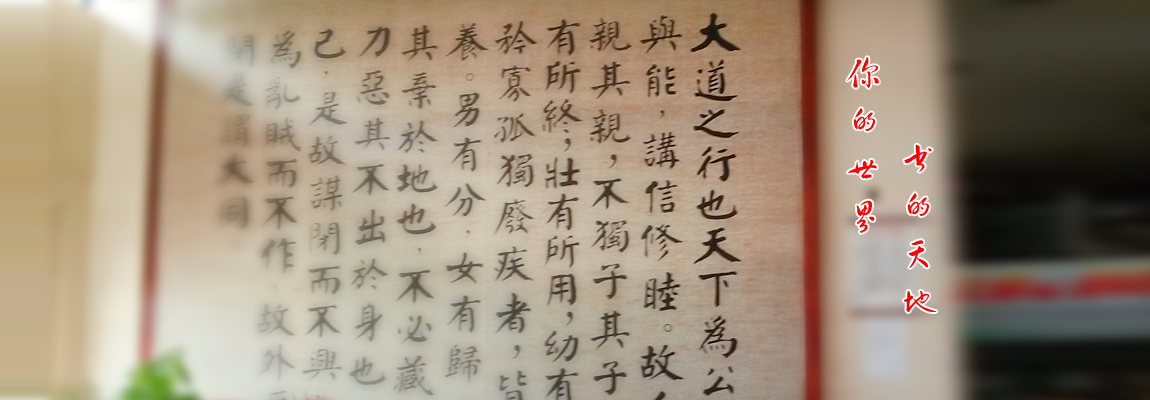 大道之行也天下為公
與能，講信修睦。故
親其親，不獨子其子
有所終，壯有所用，幼有
矜寡孤獨廢疾者，皆
養。男有分，女有歸
其棄於地也，不必藏
力惡其不出於身也
己，是故謀閉而不興
為乱賊而不作，故外
閉是謂大同
你的世界
书的天地